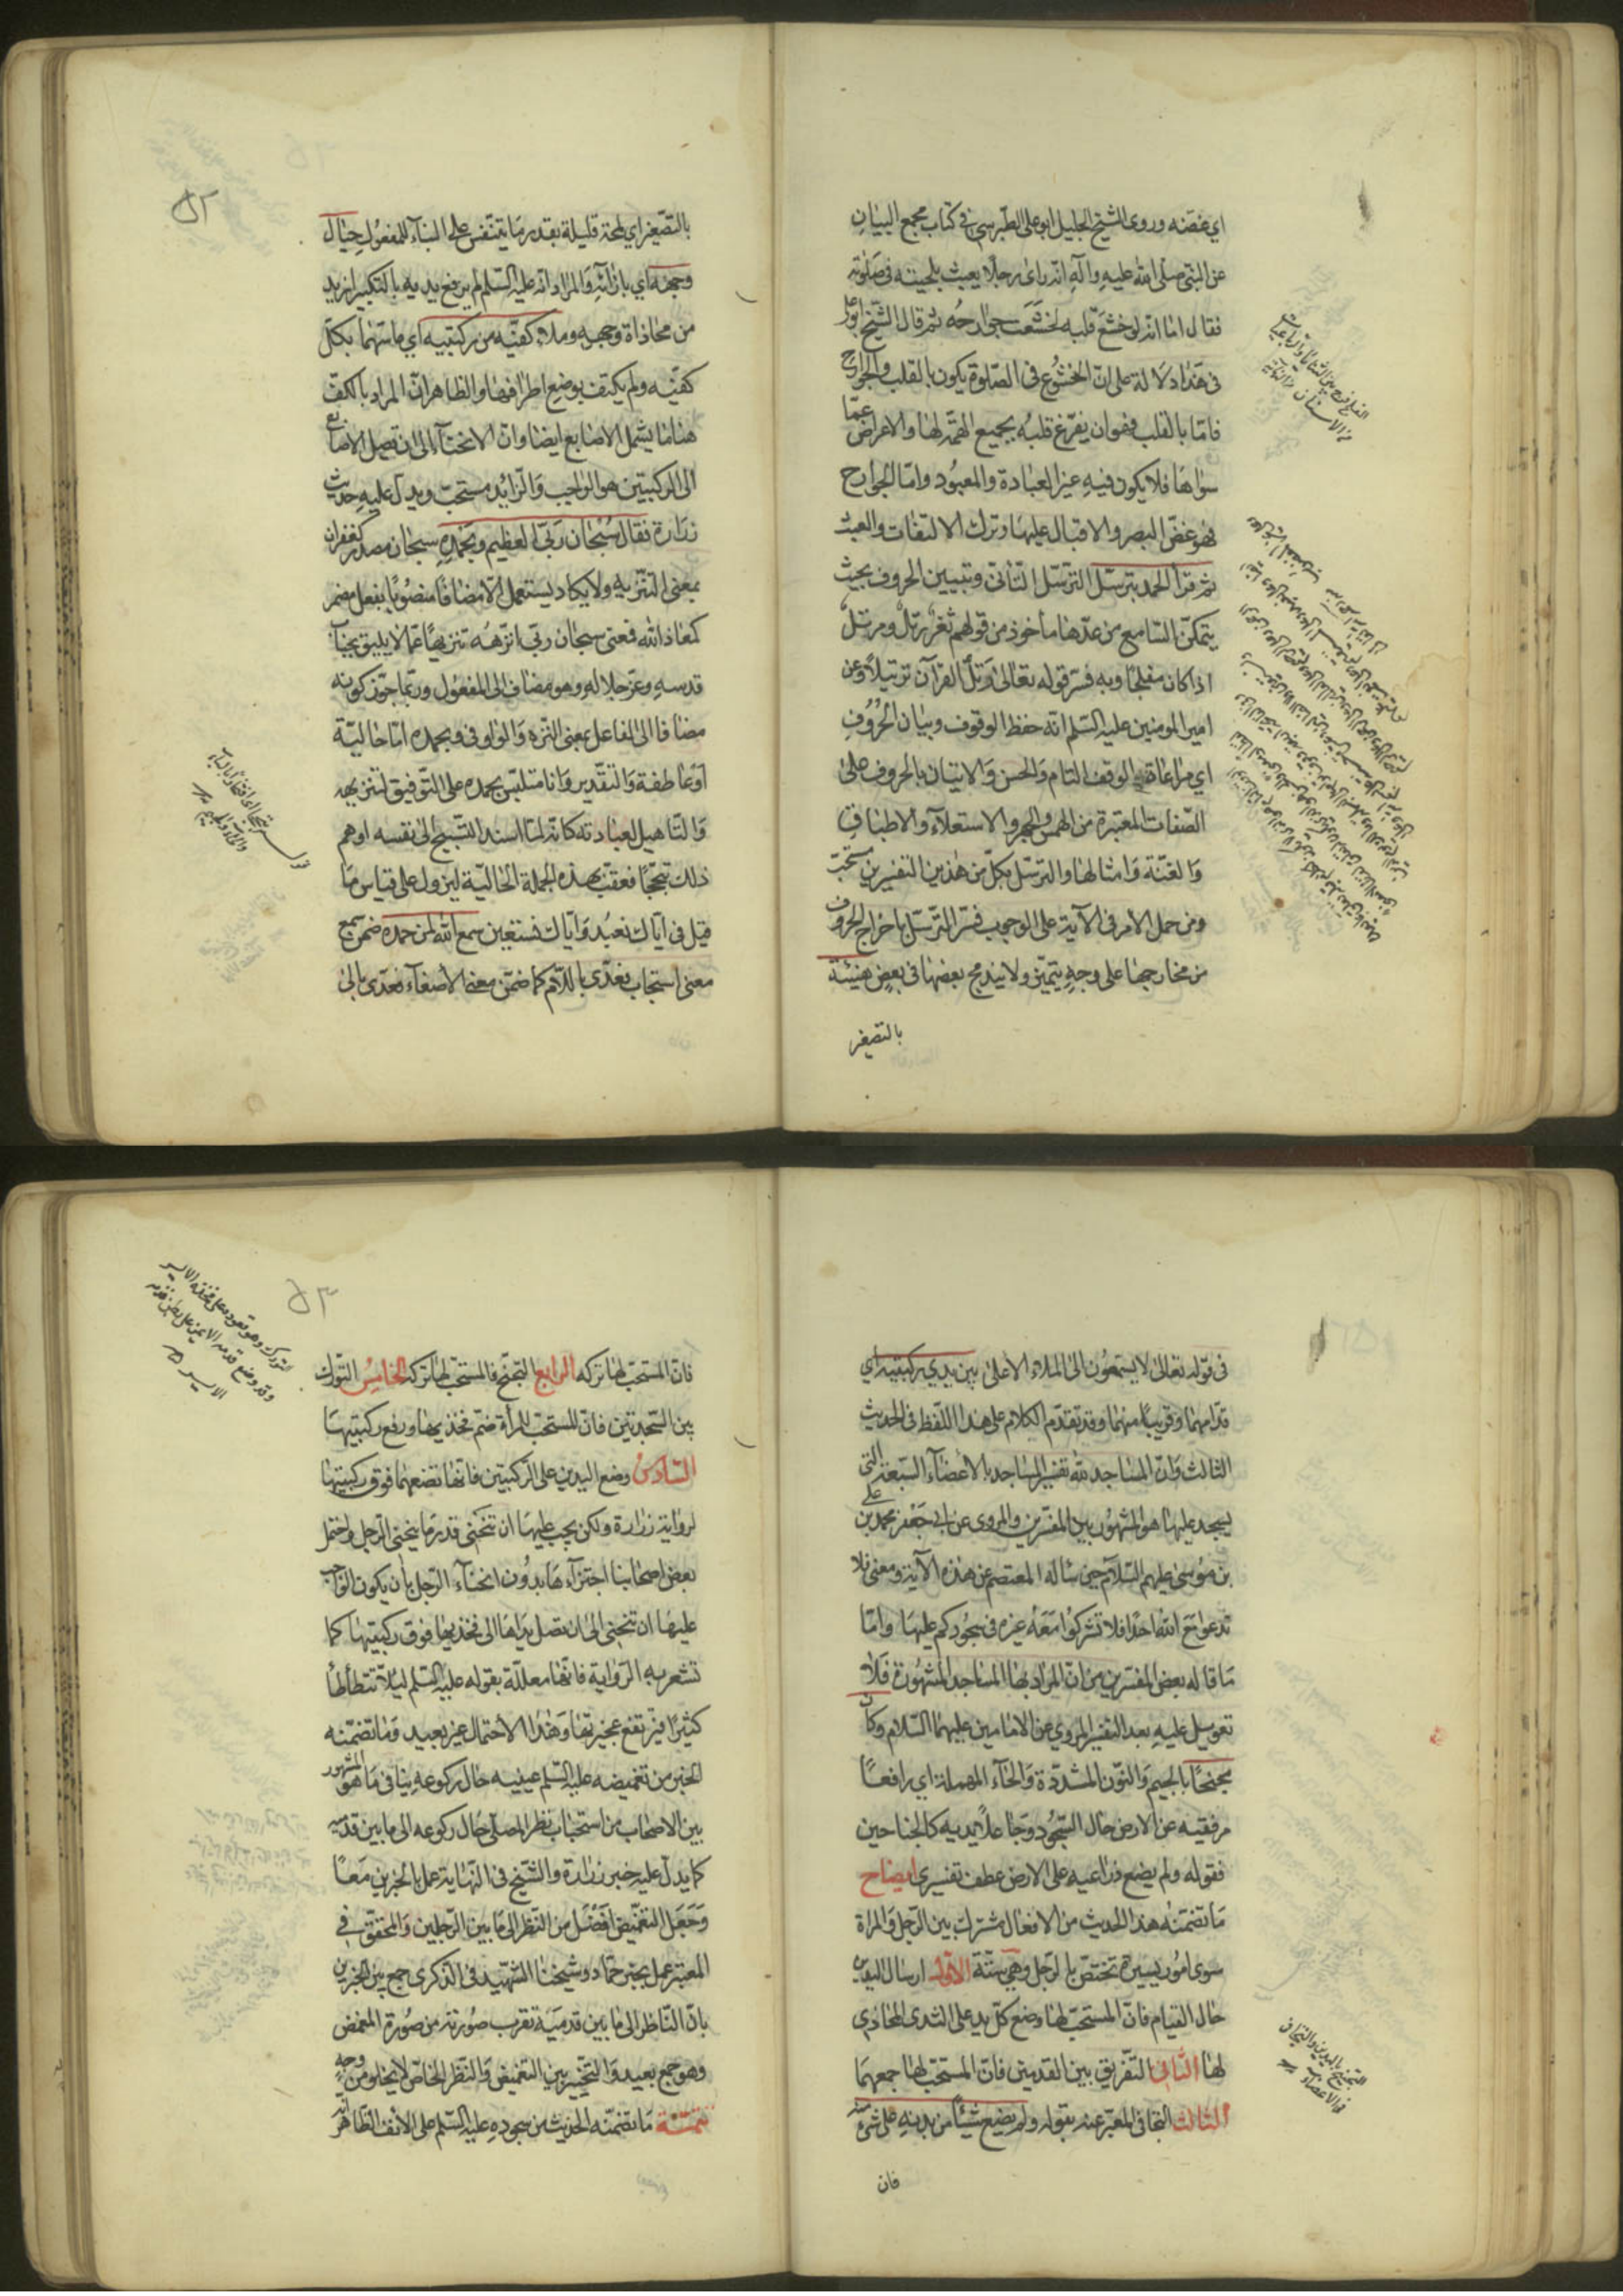 اي غضه وروى الشيخ الجليل ابو علي الطبرسي في كتاب مجمع البيان
عن النبي صلى الله عليه وآله انه راى رجلا يعبث بلحيته في صلوته
فقال اما انه لو خشع قلبه لخشعت جوارحه ثم قال الشيخ ابو علي
في هذا دلالة على ان الخشوع في الصلوة يكون بالقلب والجوارح
فاما بالقلب فهو ان يفرغ قلبه بجميع الهمة لها والاعراض عما
سواها فلا يكون فيه غير العبادة والمعبود واما الجوارح
فهو غض البصر والاقبال عليها وترك الالتفات والعبث
ثم قرأ الحمد بترسل الترسل التأني وتبيين الحروف بحيث
يتمكن السامع من عدها مأخوذ من قولهم ثغر رتل ومرتل
اذا كان مفلجا وبه فسر قوله تعالى ورتل القرآن ترتيلا وعن
امير المومنين عليه السلم انه حفظ الوقوف وبيان الحروف
اي مراعاة الوقف التام والحسن والاتيان بالحروف على
الصفات المعتبرة من الهمس والجهر والاستعلاء والاطباق
والغنة وامثالها والترسل بكل من هذين التفسيرين مستحب
ومن حمل الامر في الآية على الوجوب فسر الترسل باخراج الحروف
من مخارجها على وجه يتميز ولا يندمج بعضها في بعض هنيئة
بالتصغير
٥٢
بالتصغير اي لمحة قليلة بقدر ما يتنفس على البناء للمفعول حيال
وجهه اي بازائه والمراد انه عليه السلم لم يرفع يديه بالتكبير ازيد
من محاذاة وجهه وملاء كفيه من ركبتيه اي ماسهما بكل
كفيه ولم يكتف بوضع اطرافهما والظاهر ان المراد بالكف
هنا ما يشمل الاصابع ايضا وان الانحناء الى ان تصل الاصابع
الى الركبتين هو الواجب والزايد مستحب ويدل عليه حديث
زرارة فقال سبحان ربي العظيم وبحمده سبحان مصدر كغفران
بمعنى التنزيه ولا يكاد يستعمل الا مضافا منصوبا بفعل مضمر
كمعاذ الله فمعنى سبحان ربي انزهه تنزيها عما لا يليق بجناب
قدسه وعز جلاله وهو مضاف الى المفعول وربما جوز كونه
مضافا الى الفاعل بمعنى التنزه والواو في وبحمده اما حالية
او عاطفة والتقدير وانا متلبس بحمده على التوفيق لتنزيهه
والتاهيل لعبادته كانه لما اسند التسبيح الى نفسه اوهم
ذلك تبجحا فعقب بهذه الجملة الحالية ليزول على قياس ما
قيل في اياك نعبد واياك نستعين سمع الله لمن حمده ضمن سمع
معنى استجاب فعدى باللام كما ضمن معنى الاصغاء فعدى بالى
في قوله تعالى لا يسمعون الى الملاء الاعلى بين يدي ركبتيه اي
قدامهما وقريبا منهما وقد تقدم الكلام على هذا اللفظ في الحديث
الثالث وان المساجد لله تفسير المساجد بالاعضاء السبعة التي
يسجد عليها هو المشهور بين المفسرين والمروي عن ابي جعفر محمد بن علي
بن موسى عليهم السلام حين سأله المعتصم عن هذه الآية ومعنى فلا
تدعوا مع الله احدا فلا تشركوا معه غيره في سجودكم عليها واما
ما قاله بعض المفسرين من ان المراد بها المساجد المشهورة فلا
تعويل عليه بعد التفسير المروي عن الامامين عليهما السلام وكان
مجنحا بالجيم والنون المشددة والحاء المهملة اي رافعا
مرفقيه عن الارض حال السجود وجاعلا يديه كالجناحين
فقوله ولم يضع ذراعيه على الارض عطف تفسيري ايضاح
ما تضمنه هذا الحديث من الافعال مشترك بين الرجل والمراة
سوى امور يسيرة تختص بالرجل وهي ستة الاول ارسال اليدين
حال القيام فان المستحب لها وضع كل يد على الثدى المحاذي
لها الثاني التفريق بين القدمين فان المستحب لها جمعهما
الثالث التجافي المعبر عنه بقوله ولم يضع شيئا من بدنه على شئ منه
التجنح باليدين والتجافي
في الاعضاء
فان
٥٣
التورك وهو قعوده على فخذه الايسر
وقد وضع قدمه الايمن على بطن قدمه
الايسر
فان المستحب لها تركه الرابع التجنح فالمستحب لها تركه الخامس التورك
بين السجدتين فان المستحب للمرأة ضم فخذيها ورفع ركبتيها
السادس وضع اليدين على الركبتين فانها تضعهما فوق ركبتيها
لرواية زرارة ولكن يجب عليها ان تنحني قدر ما ينحني الرجل واحتمل
بعض اصحابنا اجتزاءها بدون انحناء الرجل بان يكون الواجب
عليها ان تنحني الى ان تصل يداها الى فخذيها فوق ركبتيها كما
تشعر به الرواية فانها معللة بقوله عليه السلم ليلا تتطأطأ
كثيرا فترتفع عجيزتها وهذا الاحتمال غير بعيد وما تضمنه
الخبر من تغميضه عليه السلم عينيه حال ركوعه ينافي ما هو المشهور
بين الاصحاب من استحباب نظر المصلي حال ركوعه الى ما بين قدميه
كما يدل عليه خبر زرارة والشيخ في النهاية عمل بالخبرين معا
وجعل التغميض افضل من النظر الى ما بين الرجلين والمحقق في
المعتبر عمل بخبر حماد وشيخنا الشهيد في الذكرى جمع بين الخبرين
بان الناظر الى ما بين قدميه تقرب صورته من صورة المغمض
وهو جمع بعيد والتخيير بين التغميض والنظر الخاص لا يخلو من وجه
تتمة ما تضمنه الحديث من سجوده عليه السلم على الانف الظاهر انه